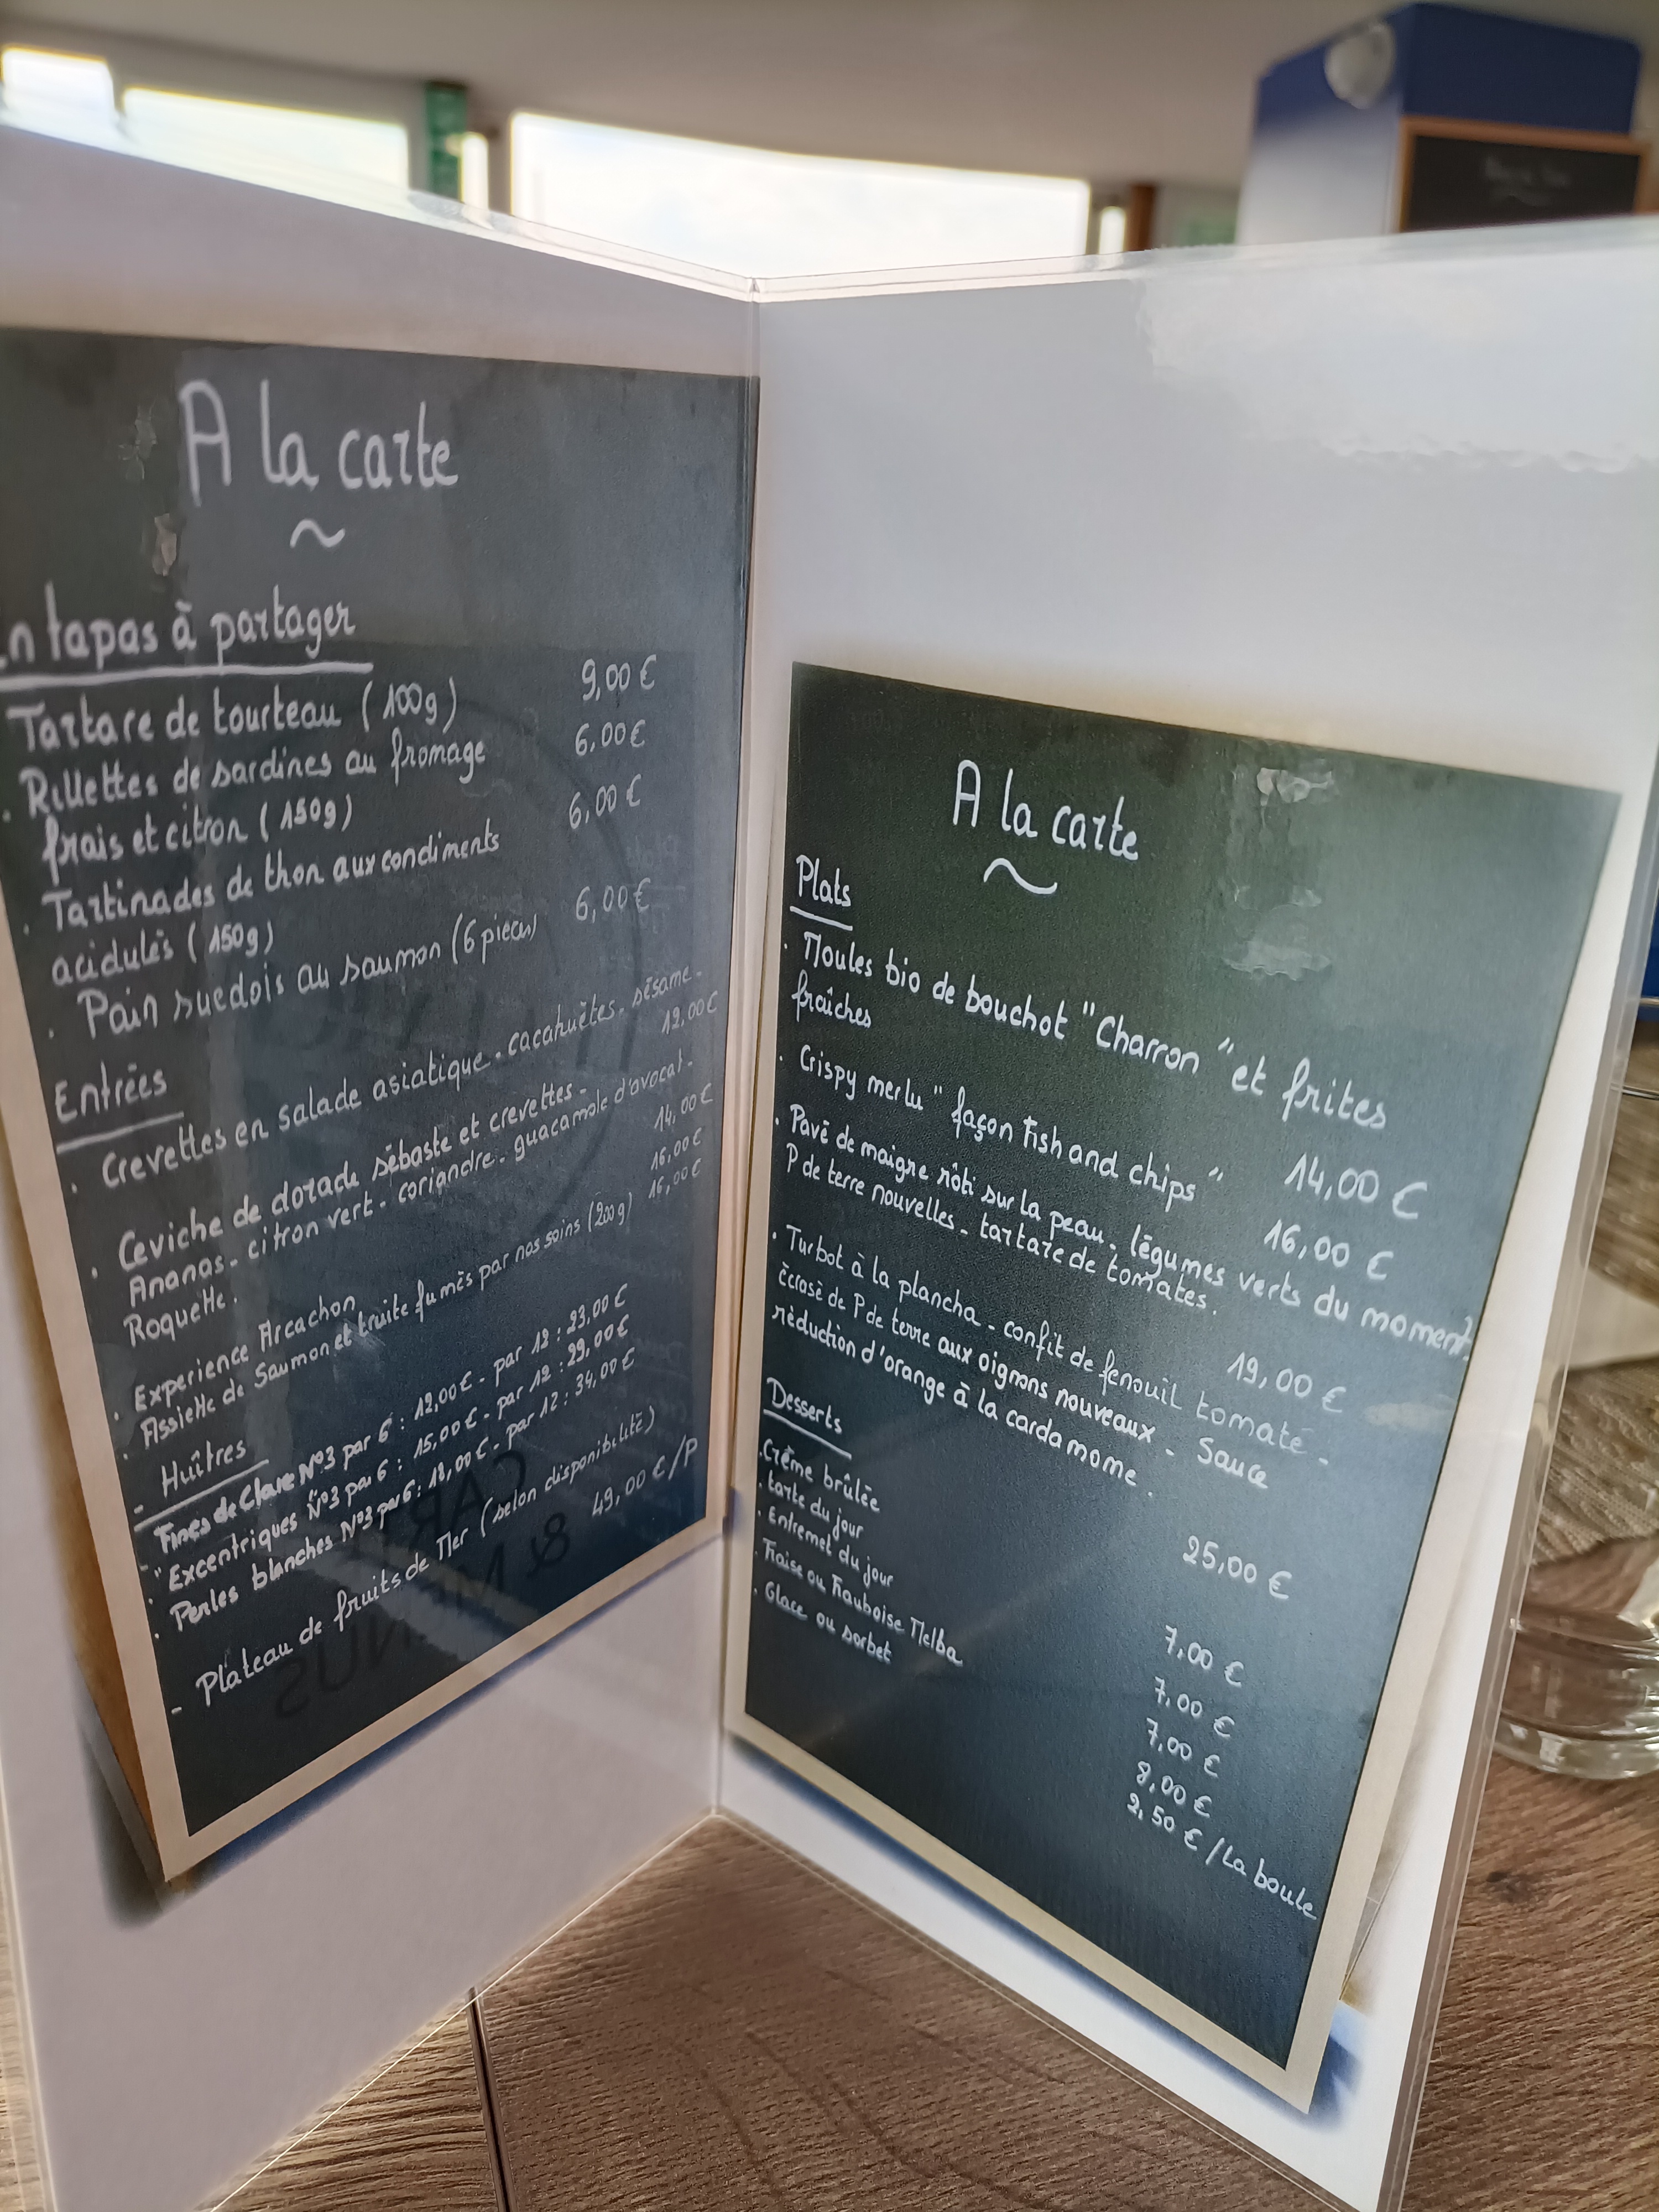 A la carte
~
En tapas à partager
Tartare de tourteau (100g) 9,00 €
. Rillettes de sardines au fromage 6,00 €
frais et citron (150g)
. Tartinades de thon aux condiments 6,00 €
acidulés (150g)
. Pain suedois au saumon (6 pieces) 6,00 €
Entrées
. Crevettes en salade asiatique - cacahuètes - sésame -
12,00 €
. Ceviche de dorade sébaste et crevettes -
Ananas - citron vert - coriandre - guacamole d'avocat -
Roquette. 14,00 €
. Experience Arcachon 16,00 €
. Assiette de Saumon et truite fumés par nos soins (200g) 16,00 €
- Huîtres
- Fines de Claire N°3 par 6 : 12,00 € - par 12 : 23,00 €
. "Excentriques N°3 par 6 : 15,00 € - par 12 : 29,00 €
. Perles blanches N°3 par 6 : 18,00 € - par 12 : 34,00 €
- Plateau de fruits de Mer (selon disponibilité)
49,00 €/P
A la carte
~
Plats
. Moules bio de bouchot "Charron" et frites
fraîches 14,00 €
. Crispy merlu "façon Fish and chips" 16,00 €
. Pavé de maigre rôti sur la peau - légumes verts du moment
P de terre nouvelles - tartare de tomates. 19,00 €
. Turbot à la plancha - confit de fenouil tomaté -
Écrasé de P de terre aux oignons nouveaux - Sauce
réduction d'orange à la cardamome. 25,00 €
Desserts
. Crème brûlée 7,00 €
. tarte du jour 7,00 €
. Entremet du jour 7,00 €
. Fraise ou Frauboise Melba 8,00 €
. Glace ou sorbet 2,50 € / La boule